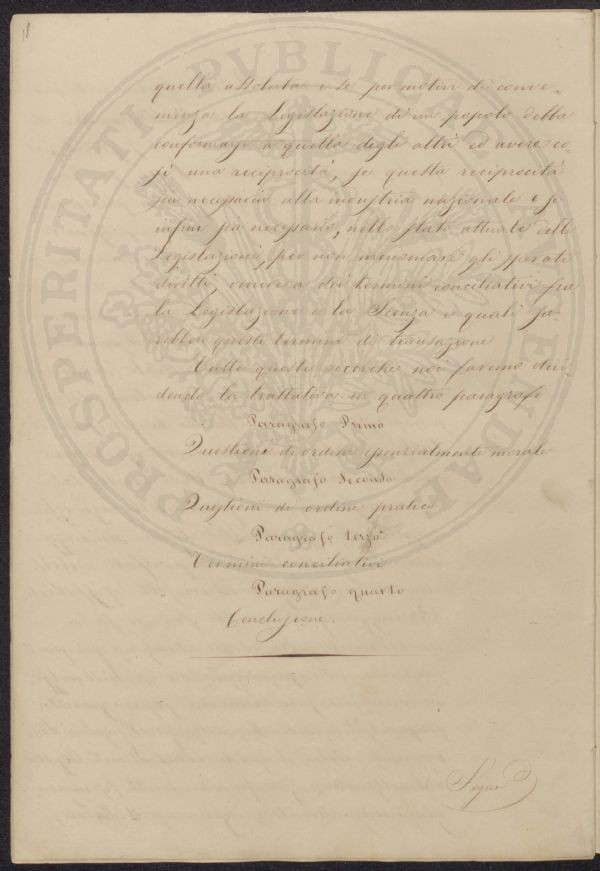 18
quella assoluta e se per motivi di conve-
nienza la Legislazione di un popolo debba
conformarsi a quella degli altri ed avere co-
sì una reciprocità, se questa reciprocità
sia necessaria alla industria nazionale e se
infine sia necessario, nello stato attuale delle
Legislazioni, per non menomare gli sperati
diritti, venire a dei termini conciliativi fra
la Legislazione e la Scienza e quali sa-
rebbero questi termini di transazione
Tutte queste ricerche noi faremo divi-
dendo la trattativa in quattro paragrafi
Paragrafo Primo
Questioni di ordine essenzialmente morale
Paragrafo Secondo
Questioni di ordine pratico
Paragrafo terzo
Termini conciliativi
Paragrafo quarto
Conclusione.
Segue
PROSPERITATI PVBLICAE